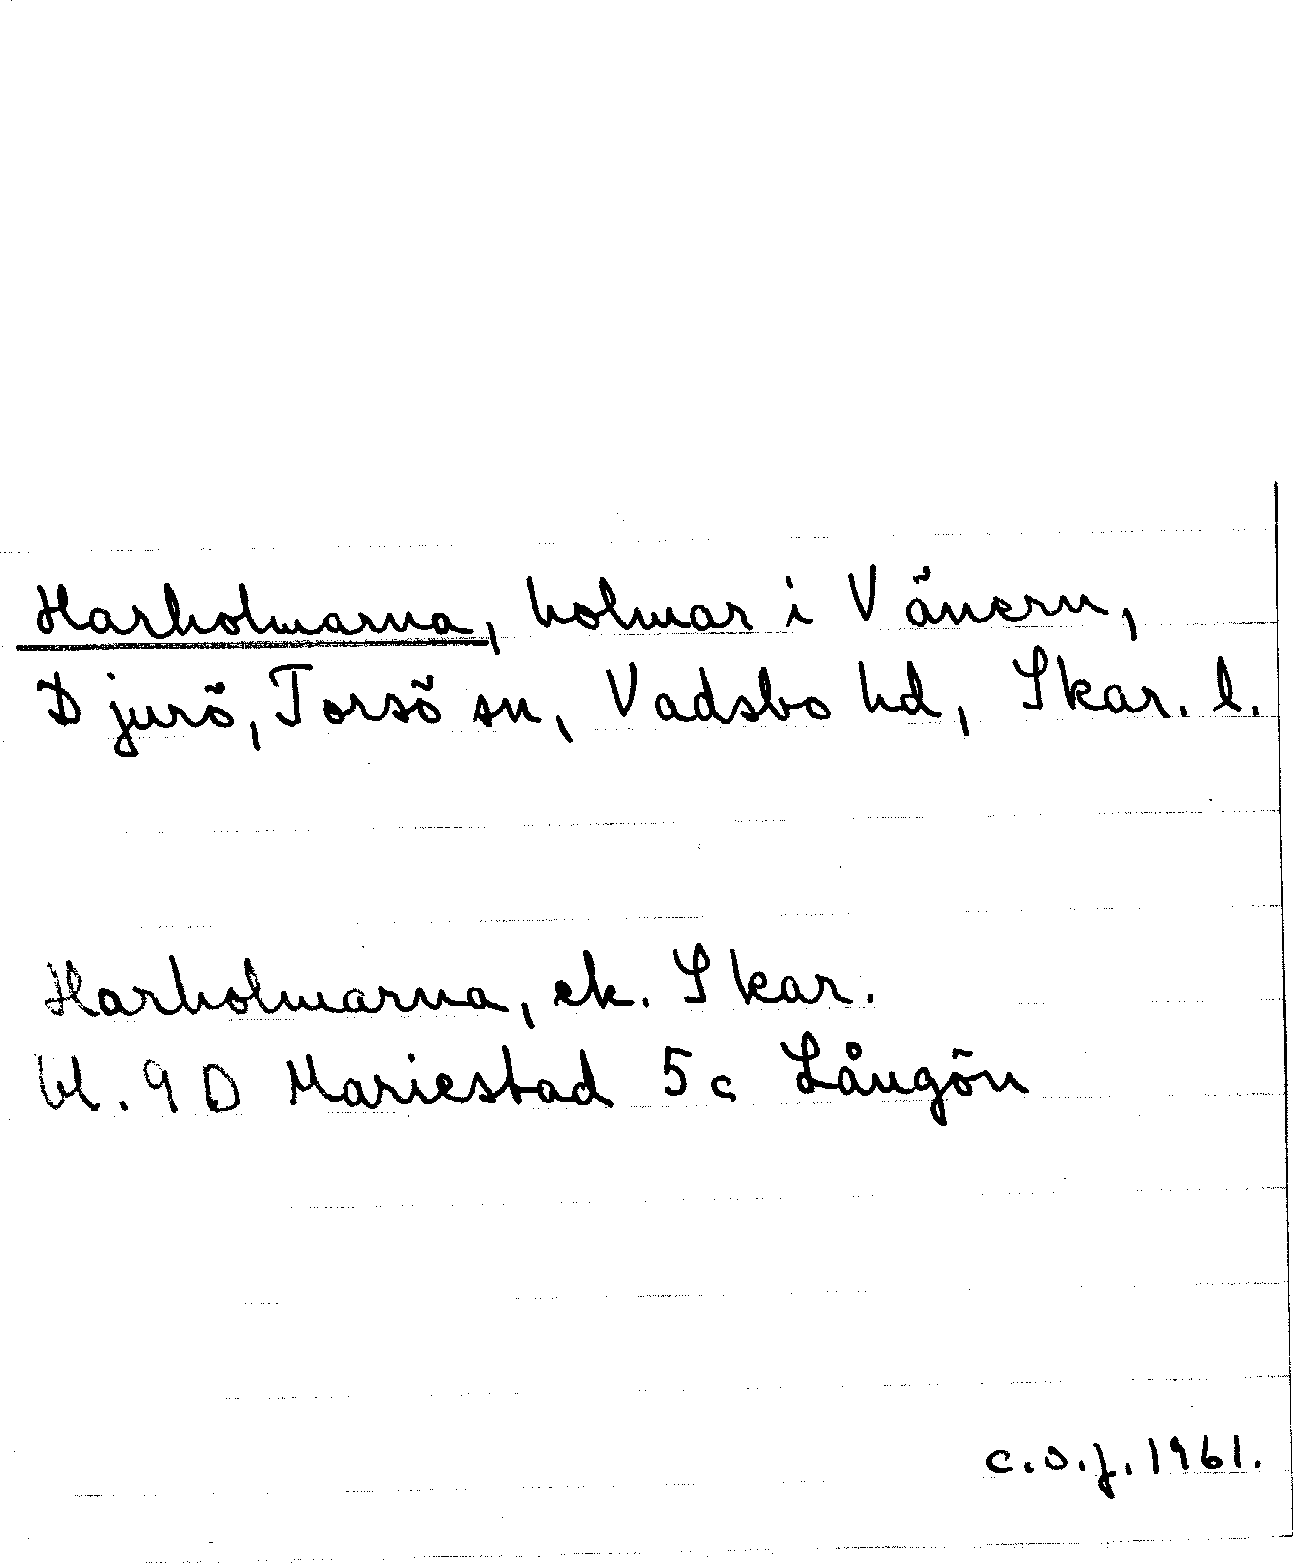 Harholmarna, holmar i Vänern,
Djurö, Torsö sn, Vadsbo hd, Skar. l.
Harholmarna, ek. Skar.
bl. 9 D Mariestad 5c Långön
c.s.j. 1961.